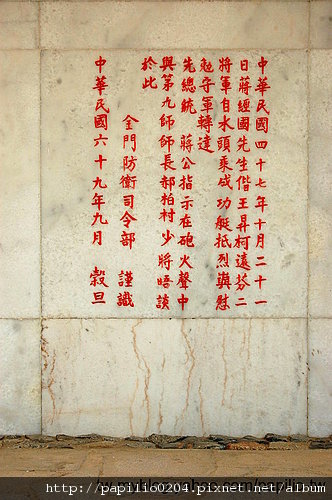 中華民國四十七年十月二十一
日蔣經國先生偕王昇柯遠芬二
將軍自水頭乘成功艇抵烈嶼慰
勉守軍轉達
先總統 蔣公指示在砲火聲中
與第九師師長郝柏村少將晤談
於此
金門防衛司令部 謹識
中華民國六十九年九月 穀旦
http://papilio0204.pixnet.net/album